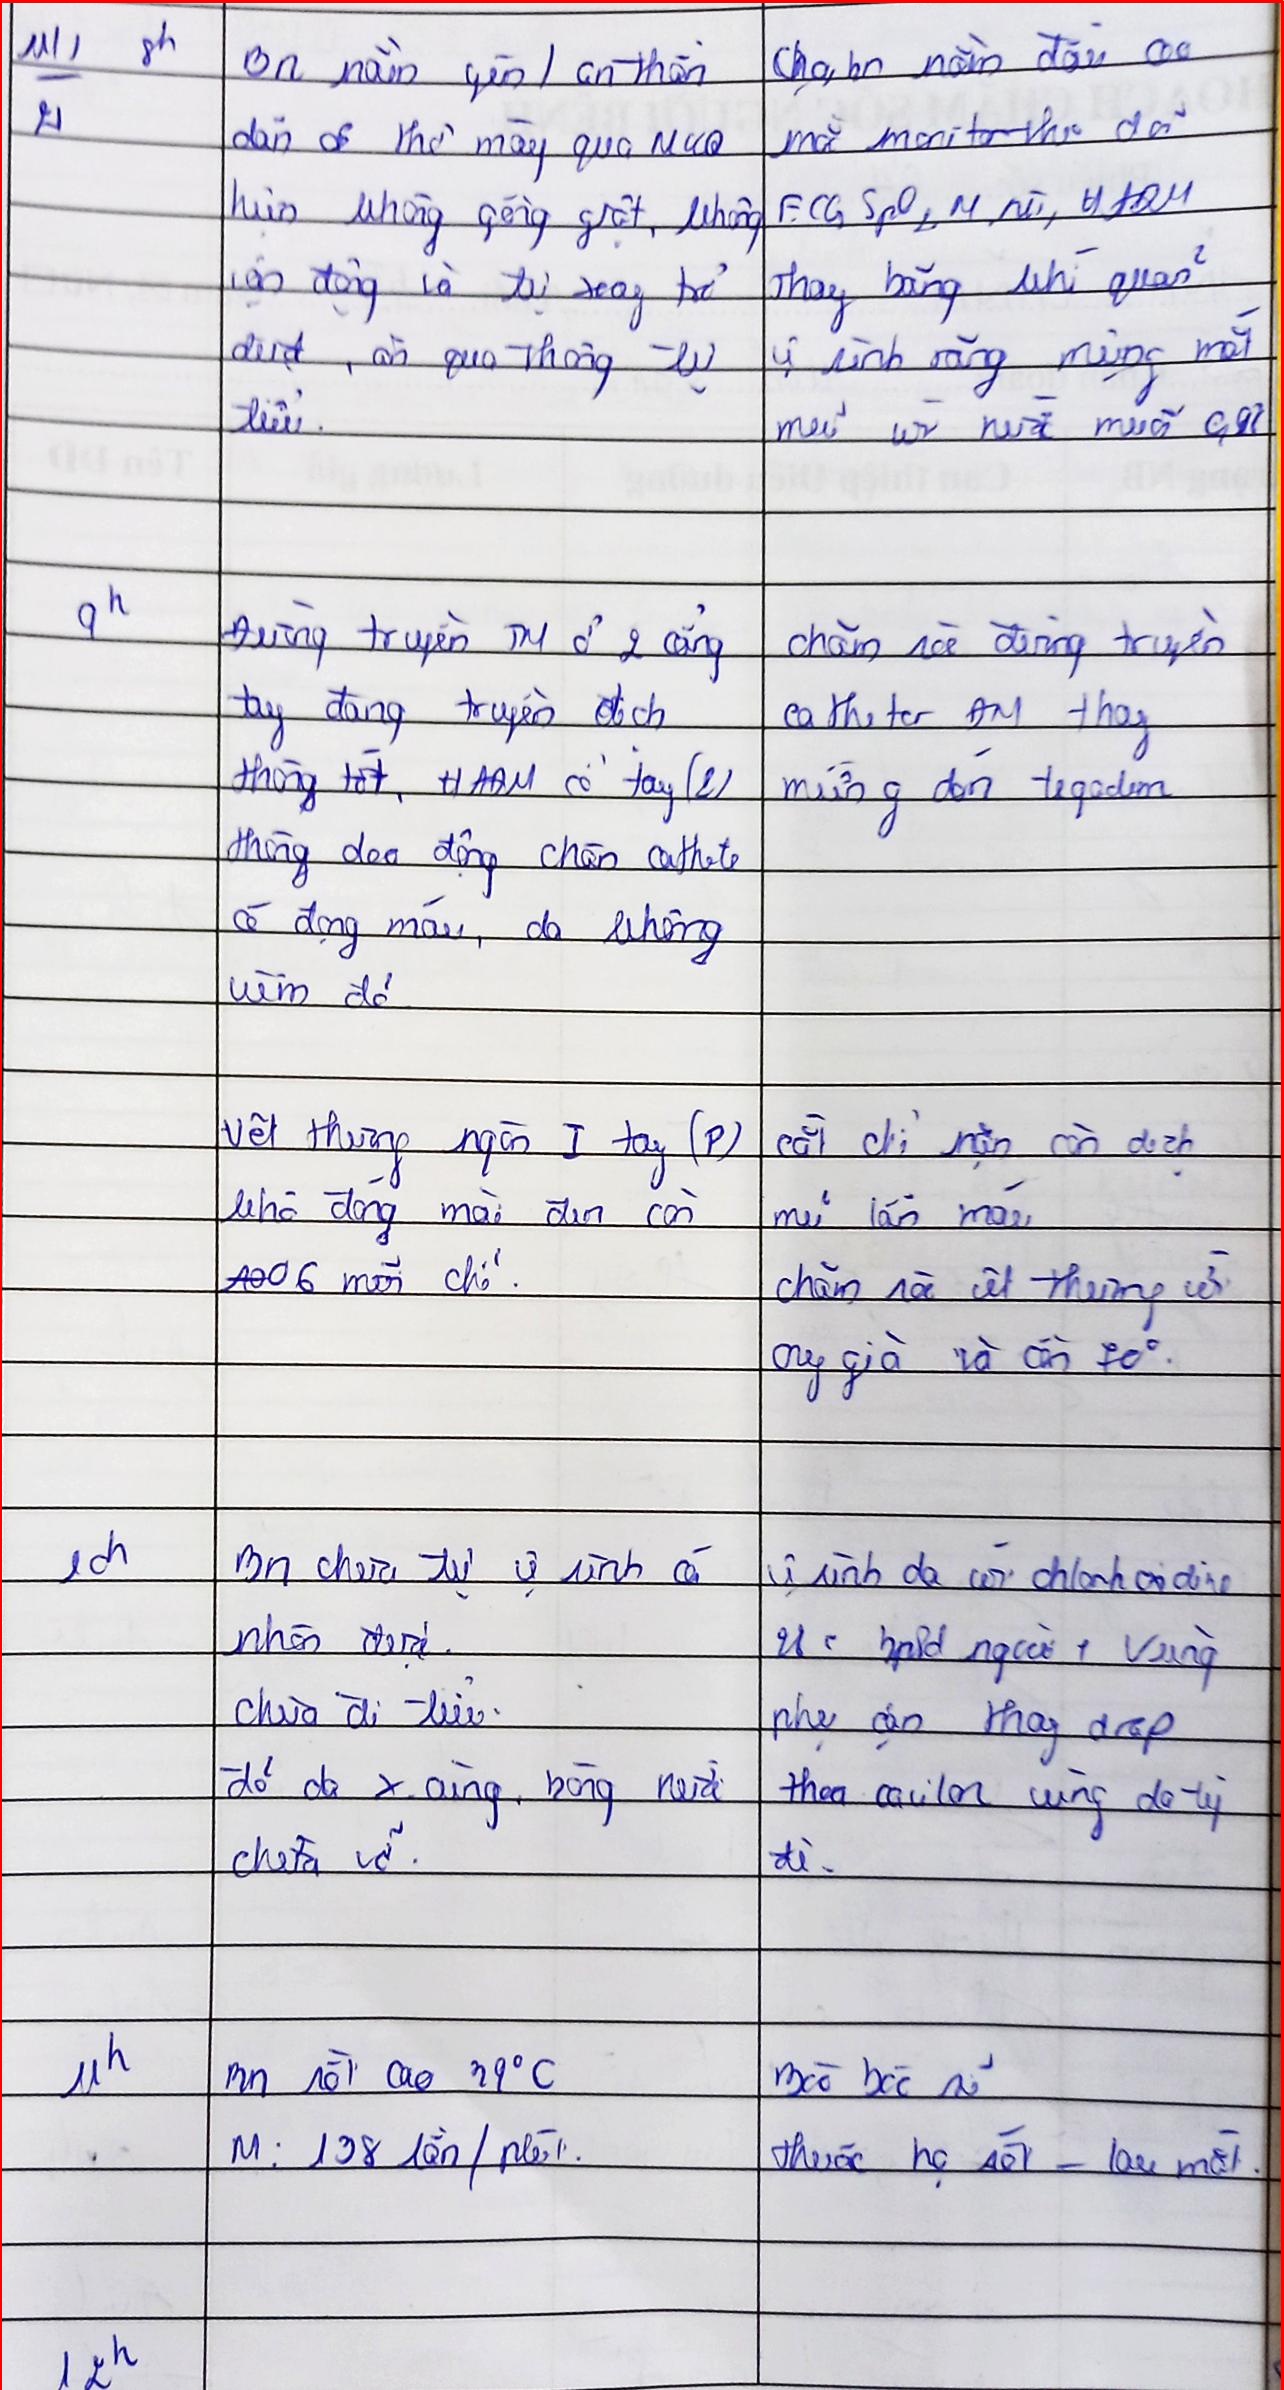 8h
Bn nằm yên / an thần
dãn cơ thở máy qua MKQ
hiện không gồng giật, không
vận động và tự xoay trở
được, ăn qua thông tự
tiểu.
Cho bn nằm đầu cao
mắc monitor theo dõi
ECG, SpO2, M, HAĐM
Thay băng khí quản
vệ sinh răng miệng mắt
mũi với nước muối 0,9%
9h
Đường truyền TM ở 2 cẳng
tay đang truyền dịch
thông tốt, HAĐM cổ tay (T)
thông dao động chân cathete
có đọng máu, da không
viêm đỏ
chăm sóc đường truyền
catheter ĐM thay
miếng dán tegaderm
Vết thương ngón I tay (P)
khô đóng mài đen còn
06 mối chỉ.
cắt chỉ nặn còn dịch
mủ lẫn máu
chăm sóc vết thương với
oxy già và cồn 70°.
10h
Bn chưa tự vệ sinh cá
nhân được.
chưa đi tiêu.
đỏ da vùng, bóng nước
chưa vỡ.
vệ sinh da với chlorhexidine
2% người + vùng
phụ cận thay drap
thoa cavilon vùng da tỳ
đè.
11h
Bn sốt cao 39°C
M: 138 lần/phút.
Báo bác sĩ
thuốc hạ sốt - lau mát.
12h